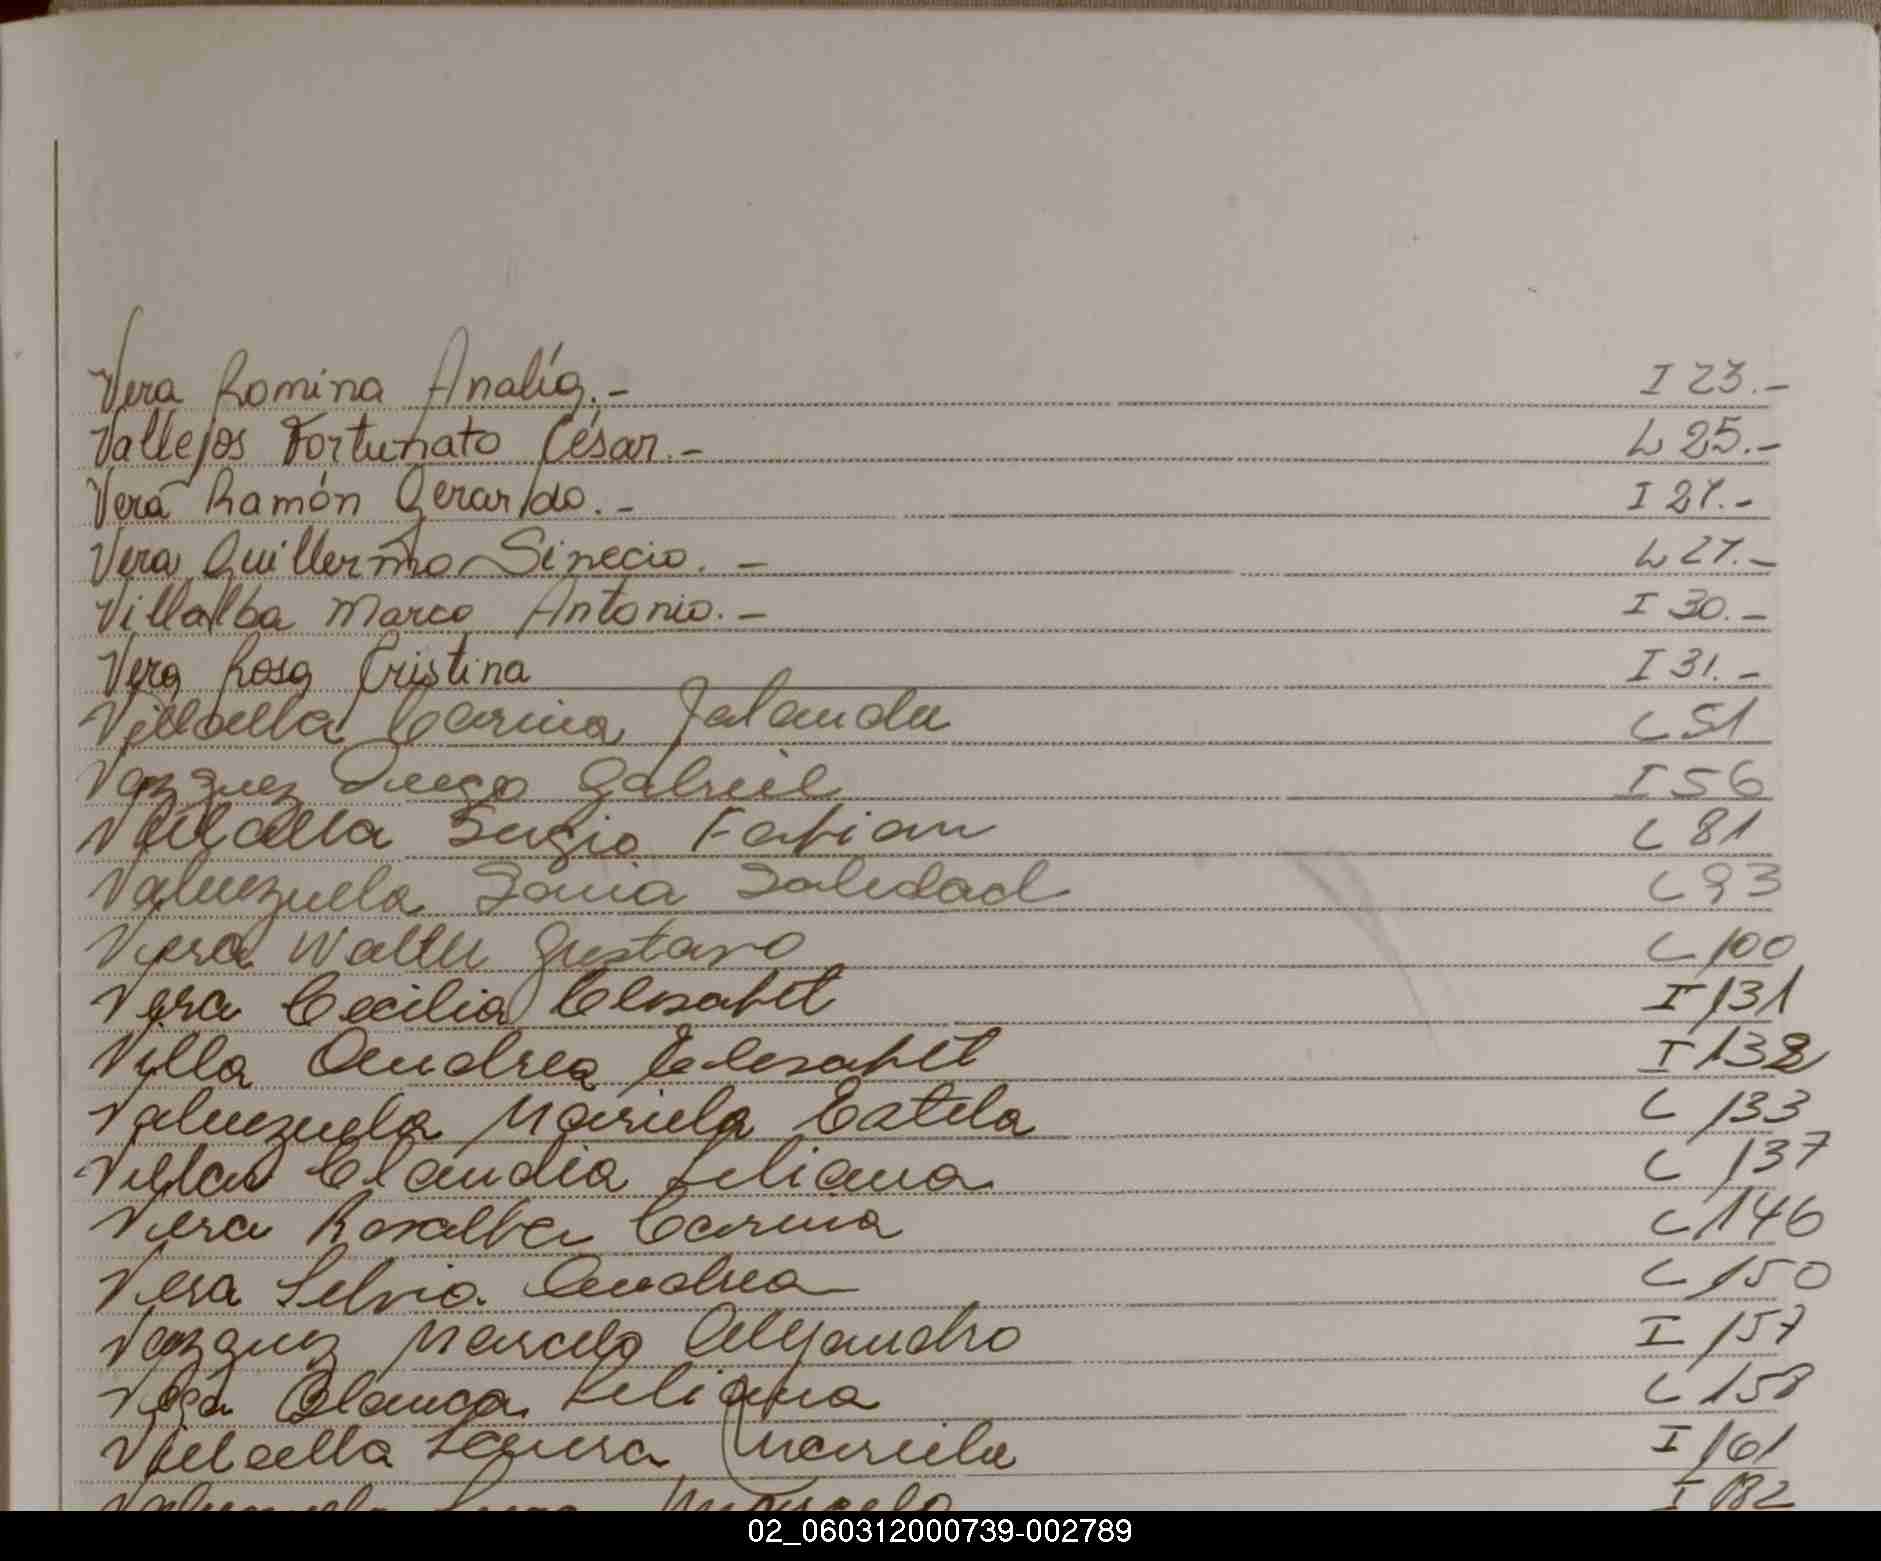 Vera Romina Analía.- I 23.-
Vallejos Fortunato César.- L 25.-
Vera Ramón Gerardo.- I 27.-
Vera Guillermo Sinecio.- L 27.-
Villalba Marco Antonio.- I 30.-
Vera Rosa Cristina I 31.-
Villalba Carina Jalanda L 51
Vazquez Diego Gabriel I 56
Villalba Sergio Fabian L 81
Valenzuela Sonia Soledad L 93
Vera Walter Gustavo L 100
Vera Cecilia Elisabet I 131
Villa Andrea Elisabet I 132
Valenzuela Mariela Estela L 133
Claudia Liliana L 137
Vera Rosalba Carina L 146
Vera Silvia Andrea L 150
Vazquez Marcelo Alejandro I 157
Vega Blanca Liliana L 158
Villalba Laura Mariela I 161
Valenzuela Marcelo I 182
02_060312000739-002789